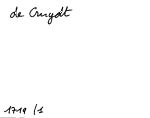 de Cruydt
1719 /1